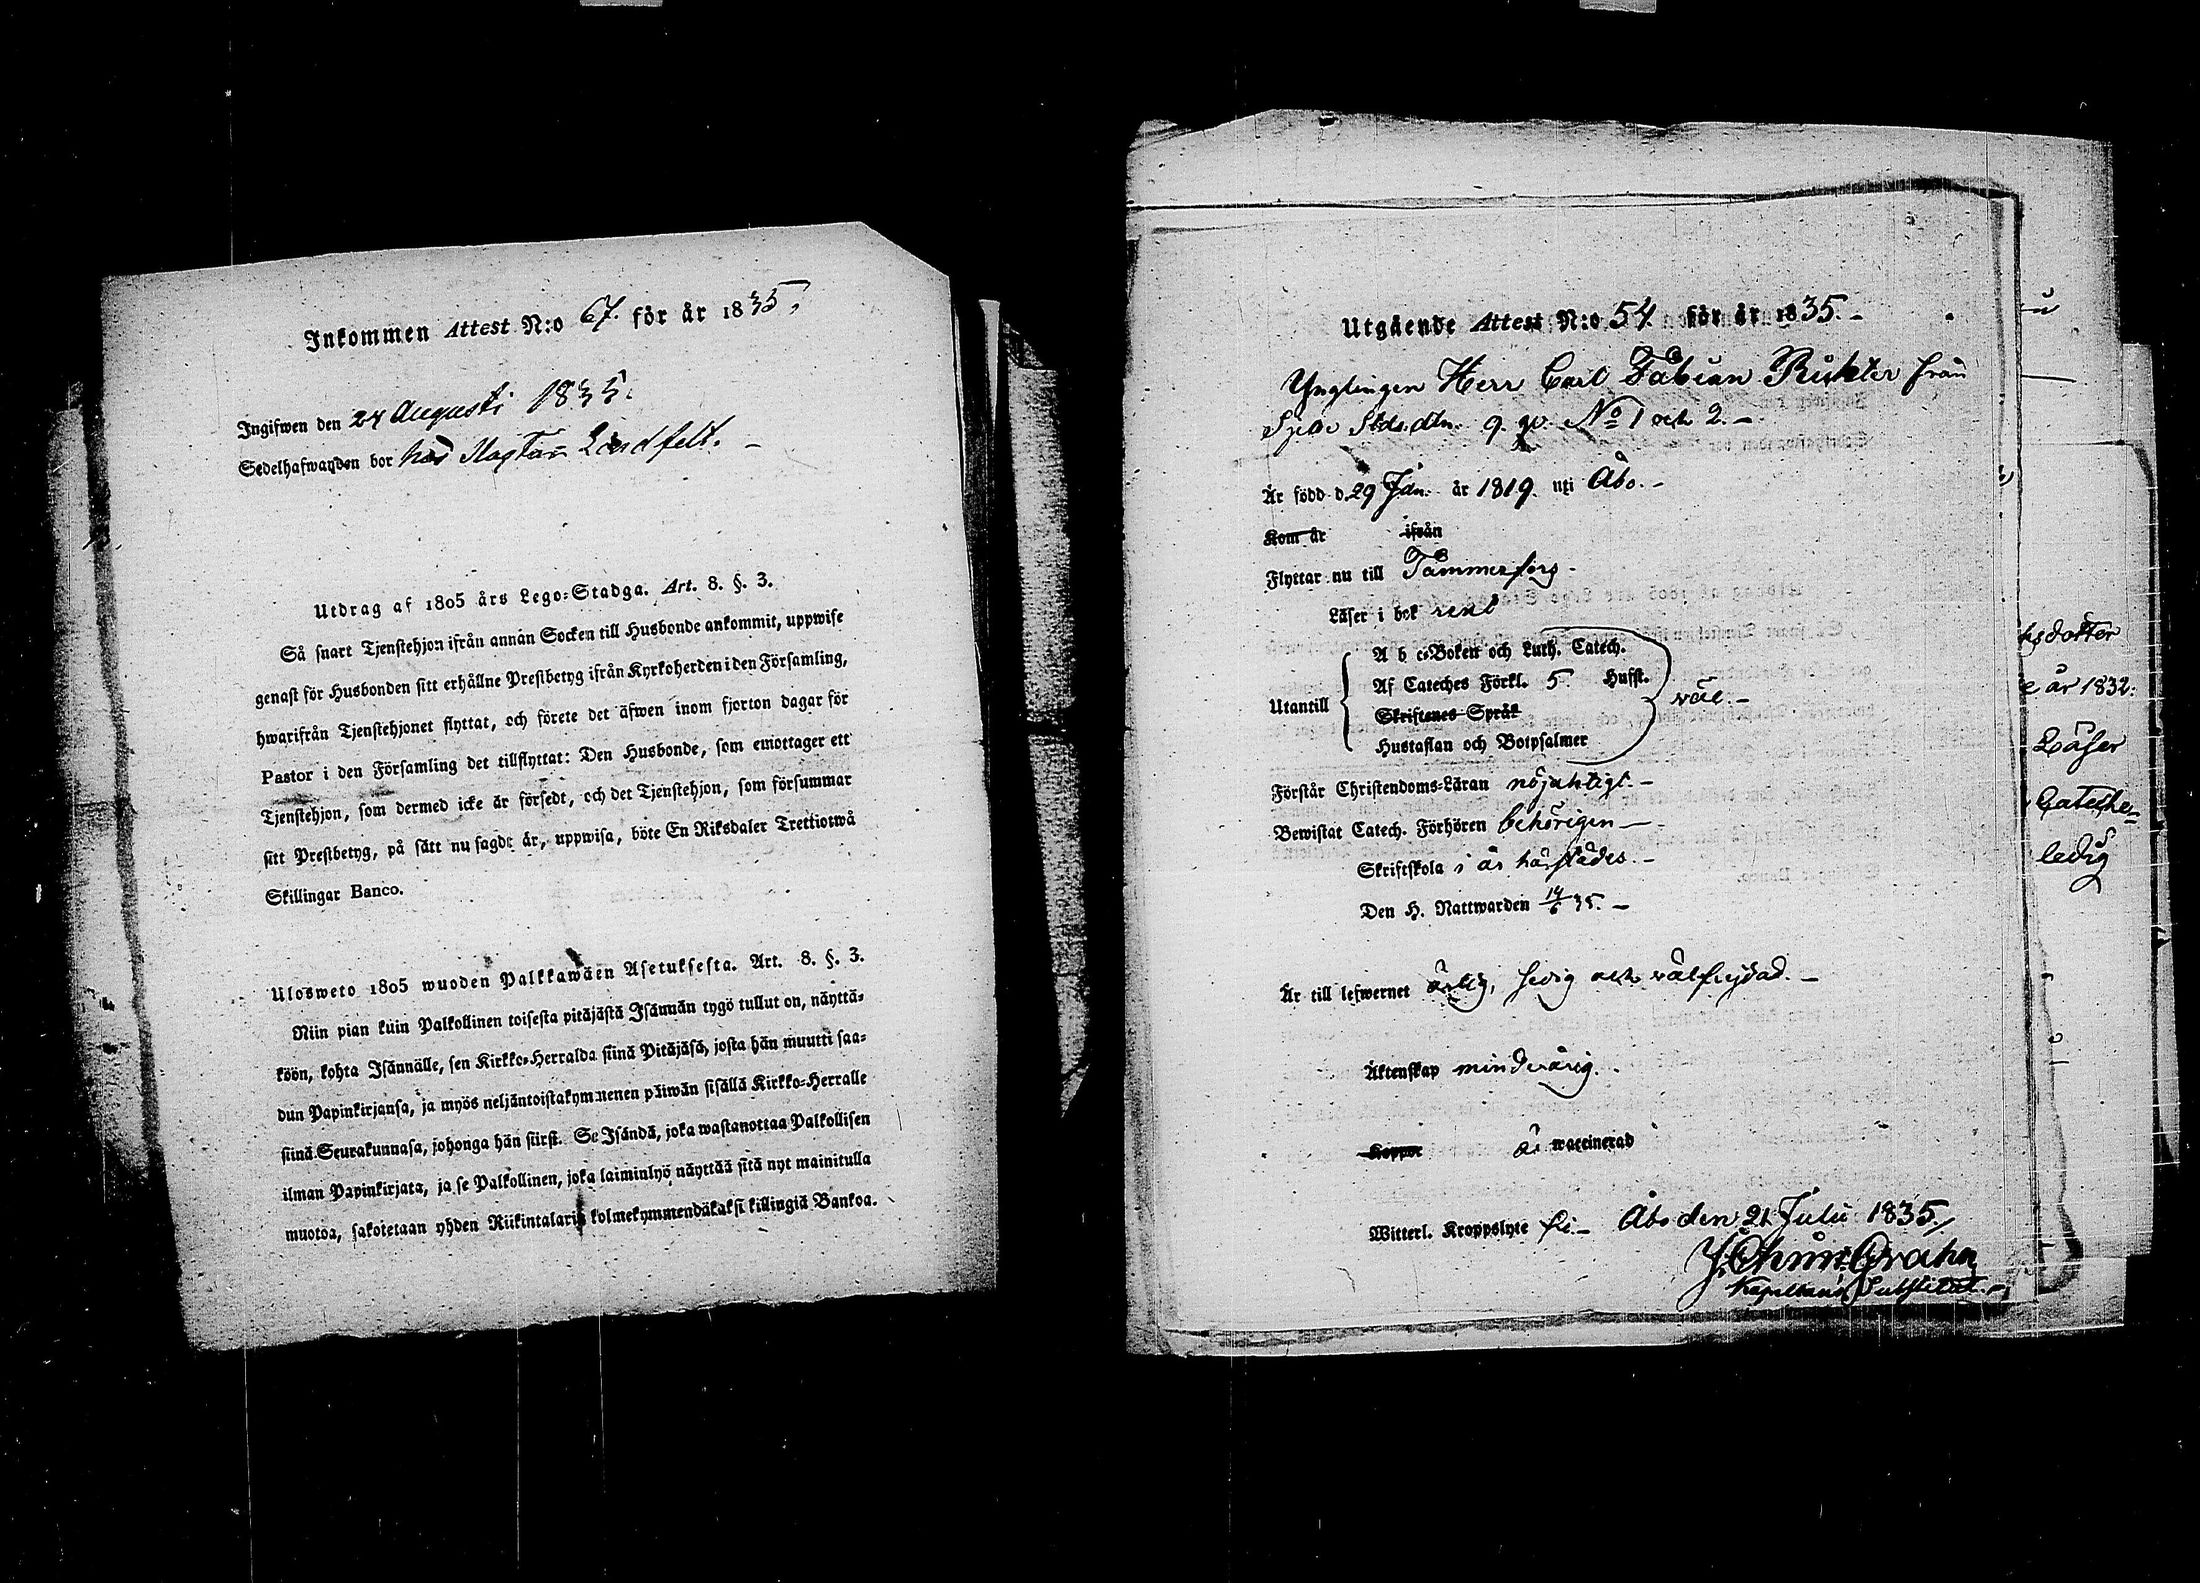 Inkommen Attest N:o 67. för år 1835.
Ingifwen den 24 Augusti 1835.
Sedelhafwanden bor hos Lindfelt. –
Utdrag af 1805 års Lego-Stadga. Art. 8. §. 3.
Så snart Tjenstehjon ifrån annan Socken till Husbonde ankommit, uppwise
genast för Husbonden sitt erhållne Prestbetyg ifrån Kyrkoherden i den Församling,
hwarifrån Tjenstehjonet flyttat, och förete det äfwen inom fjorton dagar för
Pastor i den Församling det tillflyttat: Den Husbonde, som emottager ett
Tjenstehjon, som dermed icke är försedt, och det Tjenstehjon, som försummar
sitt Prestbetyg, på sätt nu sagdt är, uppwisa, böte En Riksdaler Trettiotwå
Skillingar Banco.
Ulosweto 1805 wuoden Palkkawäen Asetuksesta. Art. 8. §. 3.
Niin pian kuin Palkollinen toisesta pitäjästä Isännän tygö tullut on, näyttä-
köön, kohta Isännälle, sen Kirkko-Herralda siinä Pitäjäsä, josta hän muutti saa-
dun Papinkirjansa, ja myös neljäntoistakymmenen päiwän sisällä Kirkko-Herralle
siinä Seurakunnasa, johonga hän siirst. Se Isändä, joka wastanottaa Palkollisen
ilman Papinkirjata, ja se Palkollinen, joka laiminlyö näyttää sitä nyt mainitulla
muotoa, sakotetaan yhden Riikintalarin kolmekymmendäkaksi killingiä Bankoa.
Utgående Attest N:o 54. för år 1835. –
Ynglingen Herr Carl Fabian Richter från
Stdsdln. q. g. No 1 och 2. –
Är född d. 29 Jan. år 1819. uti Åbo. –
Kom år ifrån
Flyttar nu till Tammerfors –
Läser i bok rent
A b c-Boken och Luth. Catech.
Af Cateches Förkl. 5 Hufst.
Utantill väl. –
Skriftenes Språk
Hustaflan och Botpsalmer
Förstår Christendoms-Läran nöjaktigt. –
Bewistat Catech. Förhören behörigen –
Skriftskola i år härstädes. –
Den H. Nattwarden 14/6 35. –
Är till lefwernet ärlig, sedig och välfrejdad. –
Äktenskap minderårig. –
Koppor är waccinerad
Witterl. Kroppslyte fri. – Åbo den 21 Juli 1835.
Grahn
Kapellans Substitut.
u
hsdotter
e år 1832:
Läser
Cateche-
ledig